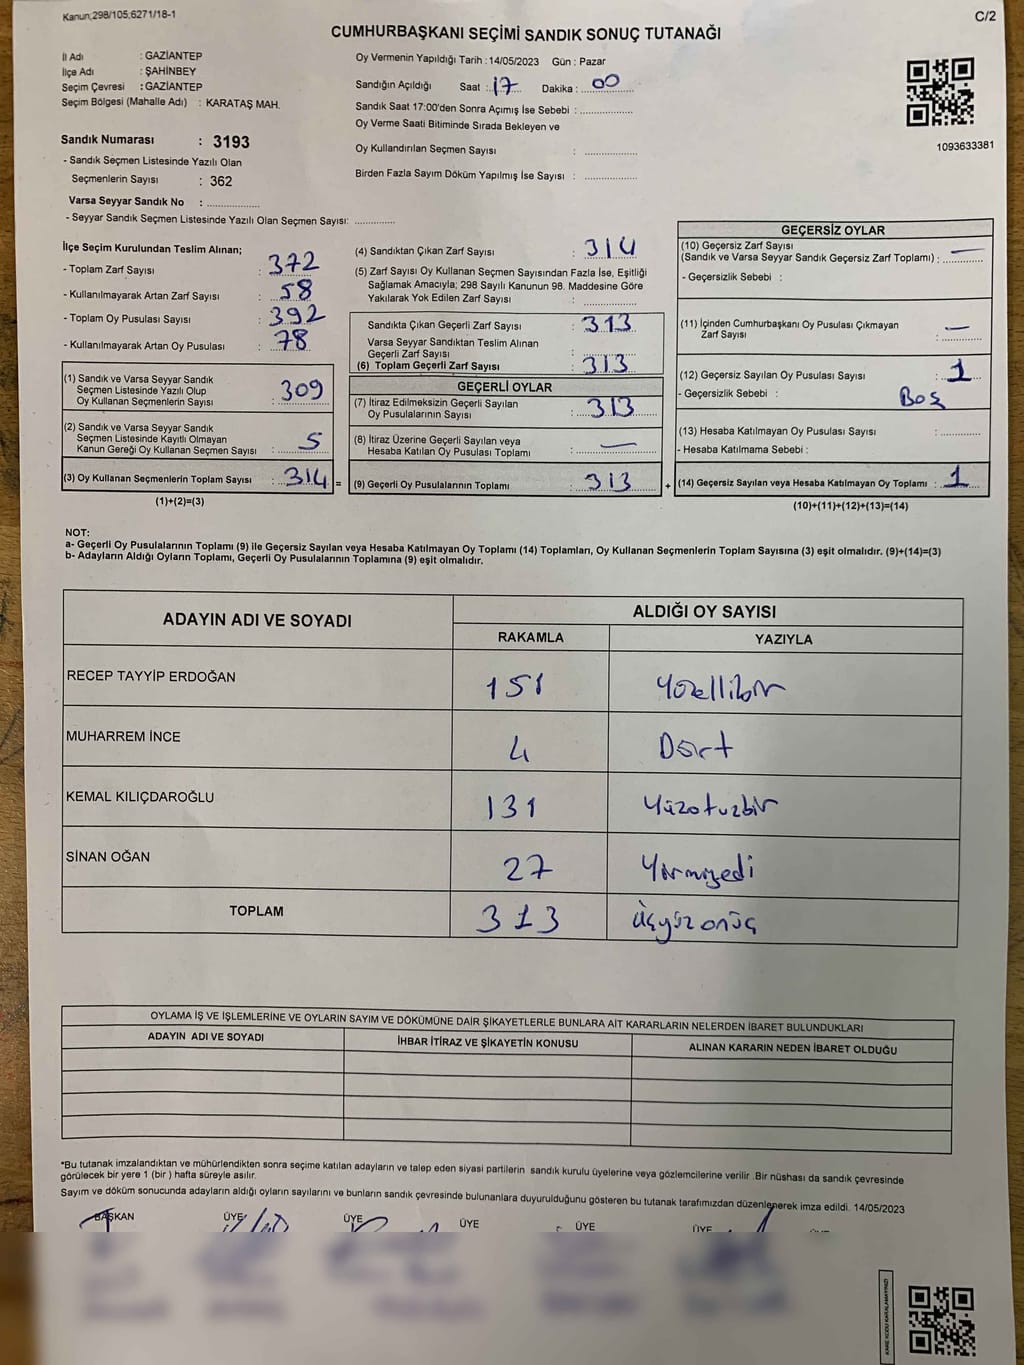 Kanun;298/105;6271/18-1
C/2
CUMHURBAŞKANI SEÇİMİ SANDIK SONUÇ TUTANAĞI
İl Adı : GAZİANTEP
İlçe Adı : ŞAHİNBEY
Seçim Çevresi : GAZİANTEP
Seçim Bölgesi (Mahalle Adı) : KARATAŞ MAH.
Oy Vermenin Yapıldığı Tarih : 14/05/2023 Gün : Pazar
Sandığın Açıldığı Saat : 17 Dakika : 00
Sandık Saat 17:00'den Sonra Açımış İse Sebebi :
Oy Verme Saati Bitiminde Sırada Bekleyen ve
Oy Kullandırılan Seçmen Sayısı :
Birden Fazla Sayım Döküm Yapılmış İse Sayısı :
1093633381
Sandık Numarası : 3193
- Sandık Seçmen Listesinde Yazılı Olan
Seçmenlerin Sayısı : 362
Varsa Seyyar Sandık No :
- Seyyar Sandık Seçmen Listesinde Yazılı Olan Seçmen Sayısı:
İlçe Seçim Kurulundan Teslim Alınan;
- Toplam Zarf Sayısı : 372
- Kullanılmayarak Artan Zarf Sayısı : 58
- Toplam Oy Pusulası Sayısı : 392
- Kullanılmayarak Artan Oy Pusulası : 78
(1) Sandık ve Varsa Seyyar Sandık
Seçmen Listesinde Yazılı Olup
Oy Kullanan Seçmenlerin Sayısı : 309
(2) Sandık ve Varsa Seyyar Sandık
Seçmen Listesinde Kayıtlı Olmayan
Kanun Gereği Oy Kullanan Seçmen Sayısı : 5
(3) Oy Kullanan Seçmenlerin Toplam Sayısı : 314 =
(1)+(2)=(3)
(4) Sandıktan Çıkan Zarf Sayısı : 314
(5) Zarf Sayısı Oy Kullanan Seçmen Sayısından Fazla İse, Eşitliği
Sağlamak Amacıyla; 298 Sayılı Kanunun 98. Maddesine Göre
Yakılarak Yok Edilen Zarf Sayısı :
Sandıkta Çıkan Geçerli Zarf Sayısı : 313
Varsa Seyyar Sandıktan Teslim Alınan
Geçerli Zarf Sayısı :
(6) Toplam Geçerli Zarf Sayısı : 313
GEÇERLİ OYLAR
(7) İtiraz Edilmeksizin Geçerli Sayılan
Oy Pusulalarının Sayısı : 313
(8) İtiraz Üzerine Geçerli Sayılan veya
Hesaba Katılan Oy Pusulası Toplamı : —
(9) Geçerli Oy Pusulalarının Toplamı : 313 +
GEÇERSİZ OYLAR
(10) Geçersiz Zarf Sayısı
(Sandık ve Varsa Seyyar Sandık Geçersiz Zarf Toplamı) : —
- Geçersizlik Sebebi :
(11) İçinden Cumhurbaşkanı Oy Pusulası Çıkmayan
Zarf Sayısı : —
(12) Geçersiz Sayılan Oy Pusulası Sayısı : 1
- Geçersizlik Sebebi : Boş
(13) Hesaba Katılmayan Oy Pusulası Sayısı :
- Hesaba Katılmama Sebebi :
(14) Geçersiz Sayılan veya Hesaba Katılmayan Oy Toplamı : 1
(10)+(11)+(12)+(13)=(14)
NOT:
a- Geçerli Oy Pusulalarının Toplamı (9) ile Geçersiz Sayılan veya Hesaba Katılmayan Oy Toplamı (14) Toplamları, Oy Kullanan Seçmenlerin Toplam Sayısına (3) eşit olmalıdır. (9)+(14)=(3)
b- Adayların Aldığı Oyların Toplamı, Geçerli Oy Pusulalarının Toplamına (9) eşit olmalıdır.
ADAYIN ADI VE SOYADI
ALDIĞI OY SAYISI
RAKAMLA YAZIYLA
RECEP TAYYİP ERDOĞAN 151 Yüzellibir
MUHARREM İNCE 4 Dört
KEMAL KILIÇDAROĞLU 131 Yüzotuzbir
SİNAN OĞAN 27 Yirmiyedi
TOPLAM 313 Üçyüzonüç
OYLAMA İŞ VE İŞLEMLERİNE VE OYLARIN SAYIM VE DÖKÜMÜNE DAİR ŞİKAYETLERLE BUNLARA AİT KARARLARIN NELERDEN İBARET BULUNDUKLARI
ADAYIN ADI VE SOYADI İHBAR İTİRAZ VE ŞİKAYETİN KONUSU ALINAN KARARIN NEDEN İBARET OLDUĞU
*Bu tutanak imzalandıktan ve mühürlendikten sonra seçime katılan adayların ve talep eden siyasi partilerin sandık kurulu üyelerine veya gözlemcilerine verilir. Bir nüshası da sandık çevresinde
görülecek bir yere 1 (bir ) hafta süreyle asılır.
Sayım ve döküm sonucunda adayların aldığı oyların sayılarını ve bunların sandık çevresinde bulunanlara duyurulduğunu gösteren bu tutanak tarafımızdan düzenlenerek imza edildi. 14/05/2023
BAŞKAN ÜYE ÜYE ÜYE ÜYE ÜYE
KARE KODU KARALAMAYINIZ!